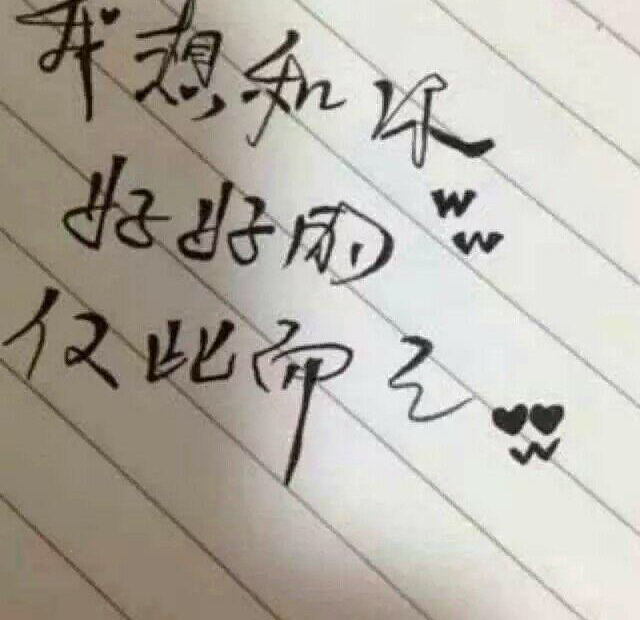 我想和你
好好的
仅此而已